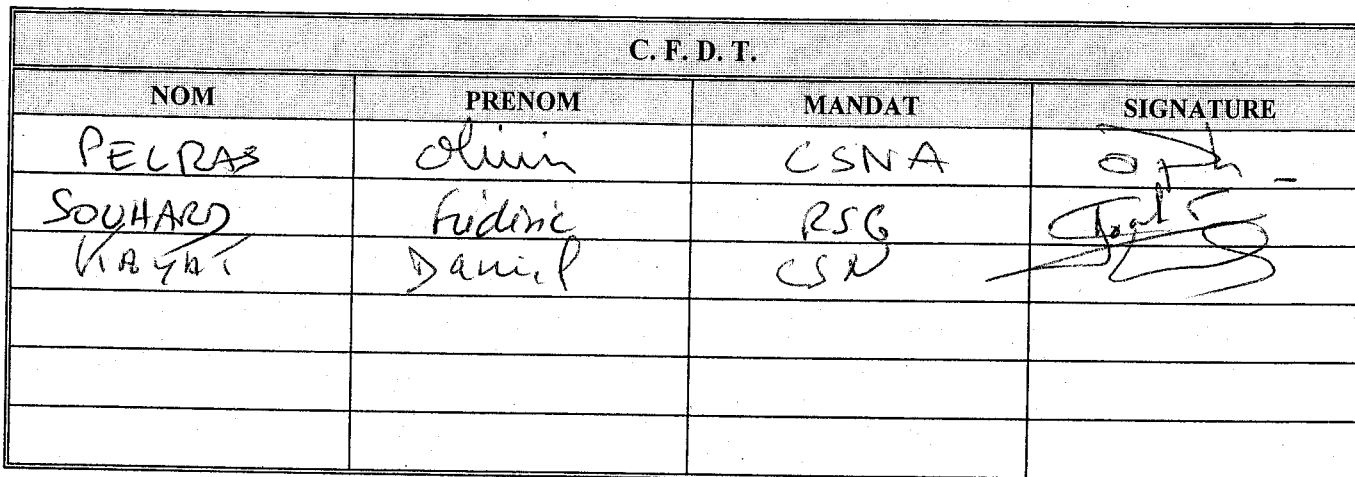 C. F. D. T.
NOM PRENOM MANDAT SIGNATURE
PELRAS Olivier CSNA
SOUHARD Frédéric RSG
KAYAT Daniel CSN